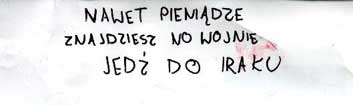 NAWET PIENIĄDZE
ZNAJDZIESZ NO WOJNIE
JEDŹ DO IRAKU